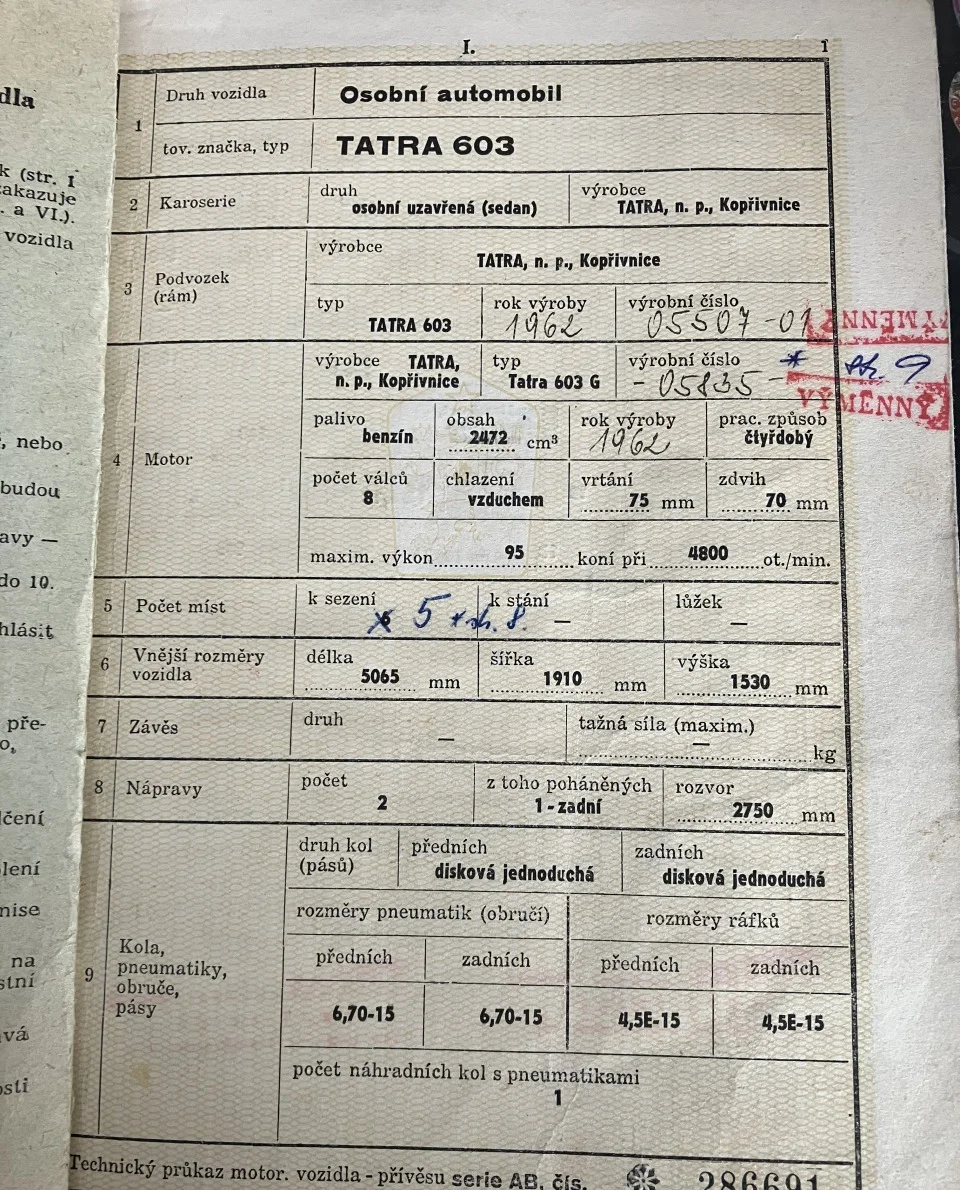 dla
k (str. I
zakazuje
. a VI.).
vozidla
, nebo
budou
avy —
do 10.
hlásit
pře-
o,
čení
lení
mise
na
stní
vá
osti
I.
1
1
Druh vozidla
Osobní automobil
tov. značka, typ
TATRA 603
2
Karoserie
druh
osobní uzavřená (sedan)
výrobce
TATRA, n. p., Kopřivnice
3
Podvozek
(rám)
výrobce
TATRA, n. p., Kopřivnice
typ
TATRA 603
rok výroby
1962
výrobní číslo
05507-01
VÝMĚNNÝ
4
Motor
výrobce TATRA,
n. p., Kopřivnice
typ
Tatra 603 G
výrobní číslo
- 05835 -
* str. 9
VÝMĚNNÝ
palivo
benzín
obsah
2472 cm³
rok výroby
1962
prac. způsob
čtyřdobý
počet válců
8
chlazení
vzduchem
vrtání
75 mm
zdvih
70 mm
maxim. výkon 95 koní při 4800 ot./min.
5
Počet míst
k sezení
6 5 * str. 8.
k stání
—
lůžek
—
6
Vnější rozměry
vozidla
délka
5065 mm
šířka
1910 mm
výška
1530 mm
7
Závěs
druh
—
tažná síla (maxim.)
— kg
8
Nápravy
počet
2
z toho poháněných
1 - zadní
rozvor
2750 mm
9
Kola,
pneumatiky,
obruče,
pásy
druh kol
(pásů)
předních
disková jednoduchá
zadních
disková jednoduchá
rozměry pneumatik (obručí)
rozměry ráfků
předních
zadních
předních
zadních
6,70-15
6,70-15
4,5E-15
4,5E-15
počet náhradních kol s pneumatikami
1
Technický průkaz motor. vozidla - přívěsu serie AB, čís. 286691